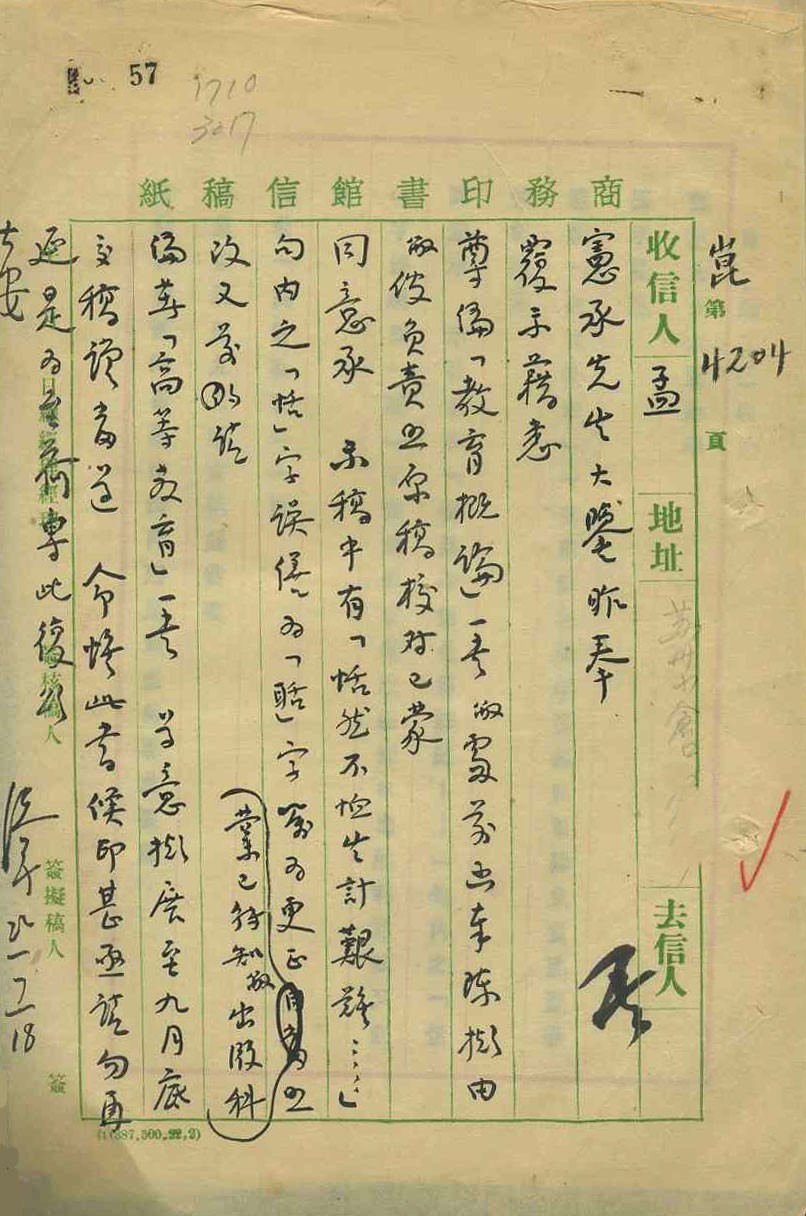 57
1710
3017
商務印書館信稿紙
崑第4204頁
收信人 孟 地址 去信人
憲承先生大鑒昨奉
覆示藉悉
尊編「教育概論」一書敝處前函奉陳擬由
敝館負責照原稿校对已蒙
同意承 示稿中有「恬然不恤生計艱難……」
句内之「恬」字誤繕为「聒」字 囑为更正 照
改又前 (業已轉知敝出版科)
編著「高等教育」一書 尊意擬展至九月底
交稿謹當遵 命惟此書候印甚亟請勿再
延是为至荷專此復頌
大安
核稿人
簽擬稿人
簽
7-18
(1(387,500,22,2)